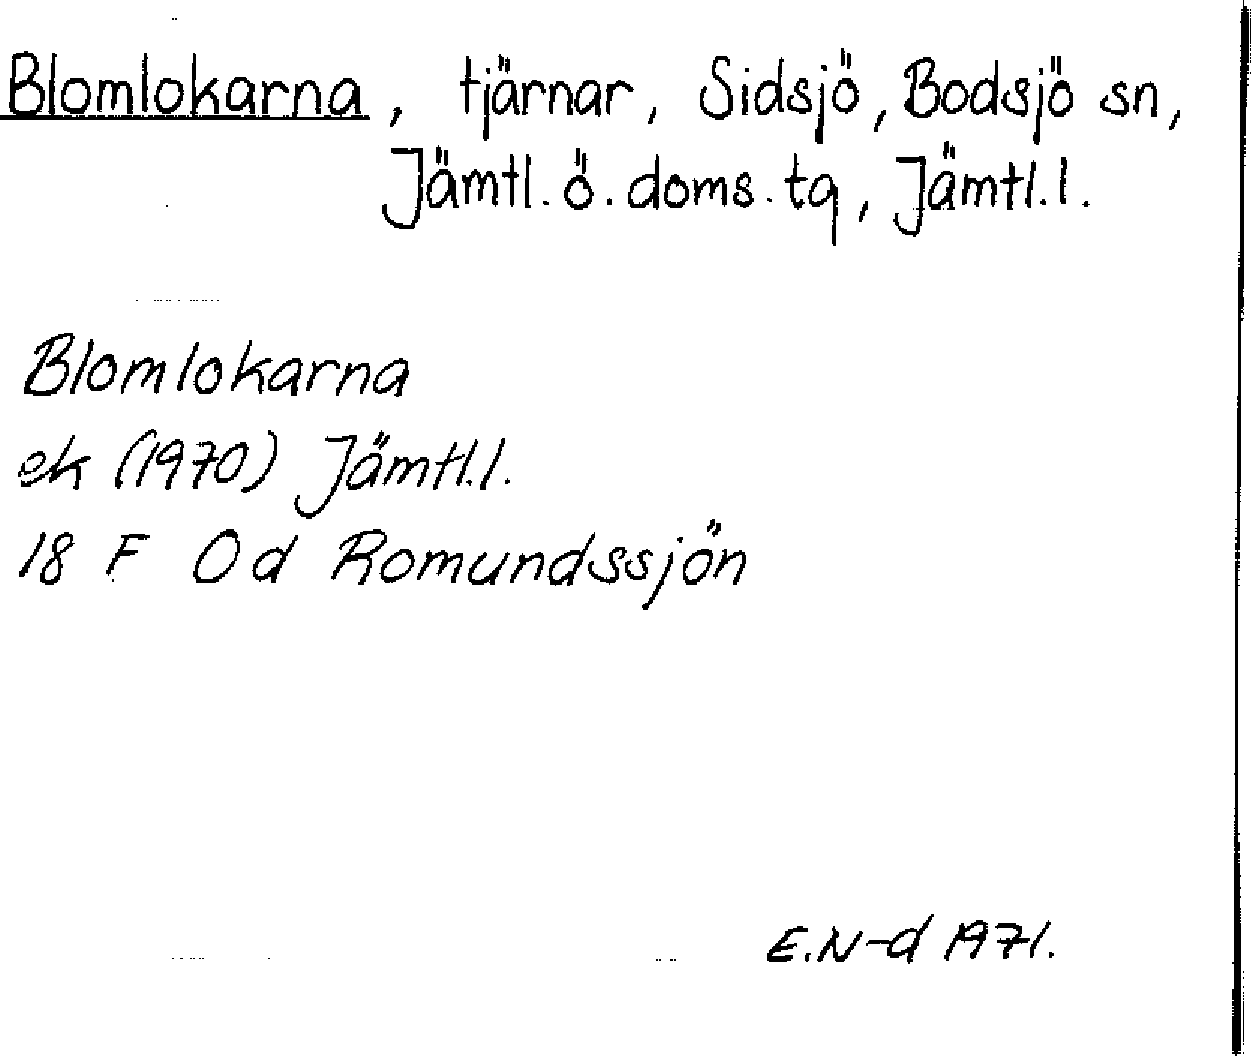 Blomlokarna, tjärnar, Sidsjö, Bodsjö sn,
Jämtl. ö. doms. tg, Jämtl. l.
Blomlokarna
ek (1970) Jämtl. l.
18 F 0 d Romundssjön
E.N-d 1971.